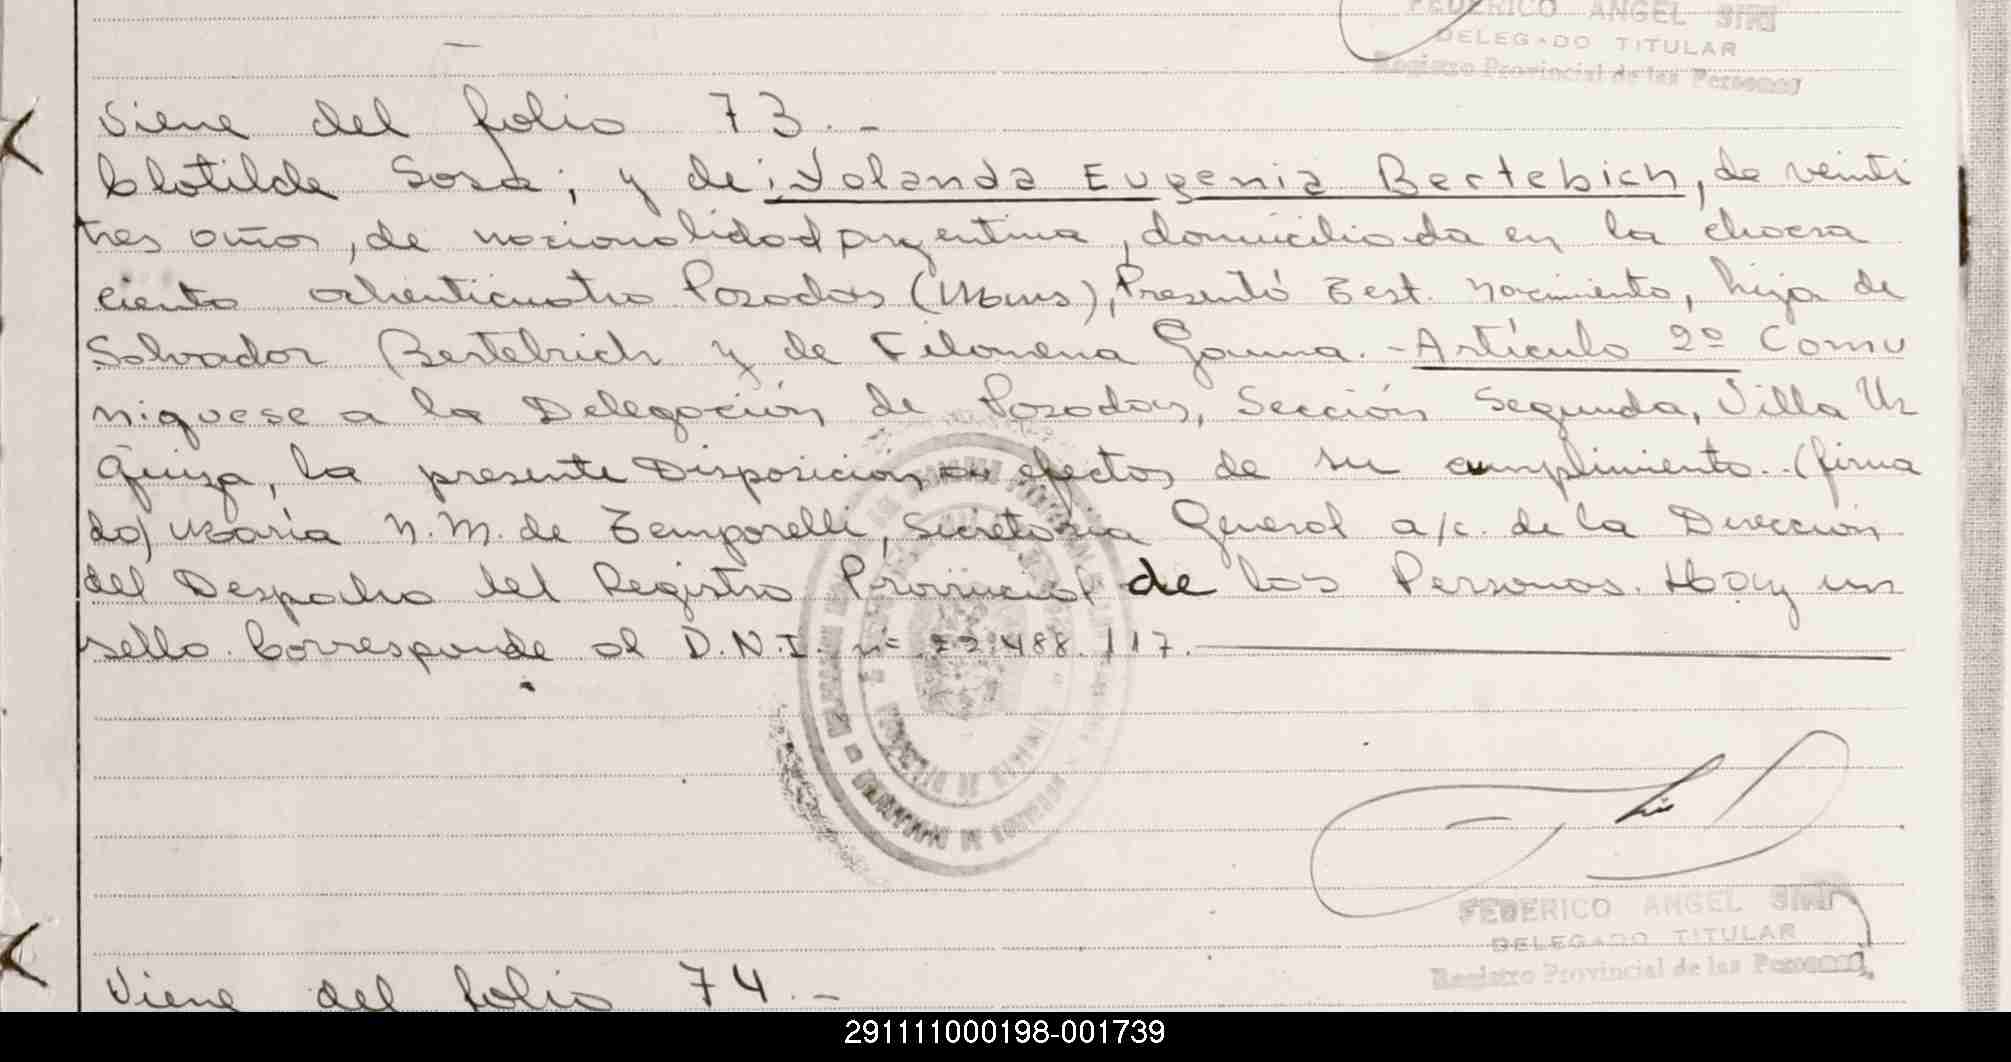 FEDERICO ANGEL SIRI
DELEGADO TITULAR
Registro Provincial de las Personas
Viene del folio 73.-
Clotilde Sosa; y de: Yolanda Eugenia Bertebich, de veinti
tres años, de nacionalidad argentina, domiciliada en la chacra
ciento ochenticuatro Posadas (Mnes), Presentó Test. nacimiento, hija de
Salvador Bertebich y de Filomena Gauna.- Artículo 2º Comu
niquese a la Delegación de Posadas, Sección Segunda, Villa Ur
quiza, la presente Disposición a efectos de su cumplimiento.. (firma
do) María N. M. de Temporelli, Secretaria General a/c. de la Dirección
del Despacho del Registro Provincial de las Personas. Hay un
sello. Corresponde al D.N.I. nº 22.488.117.
FEDERICO ANGEL SIRI
DELEGADO TITULAR
Registro Provincial de las Personas
Viene del folio 74.-
291111000198-001739